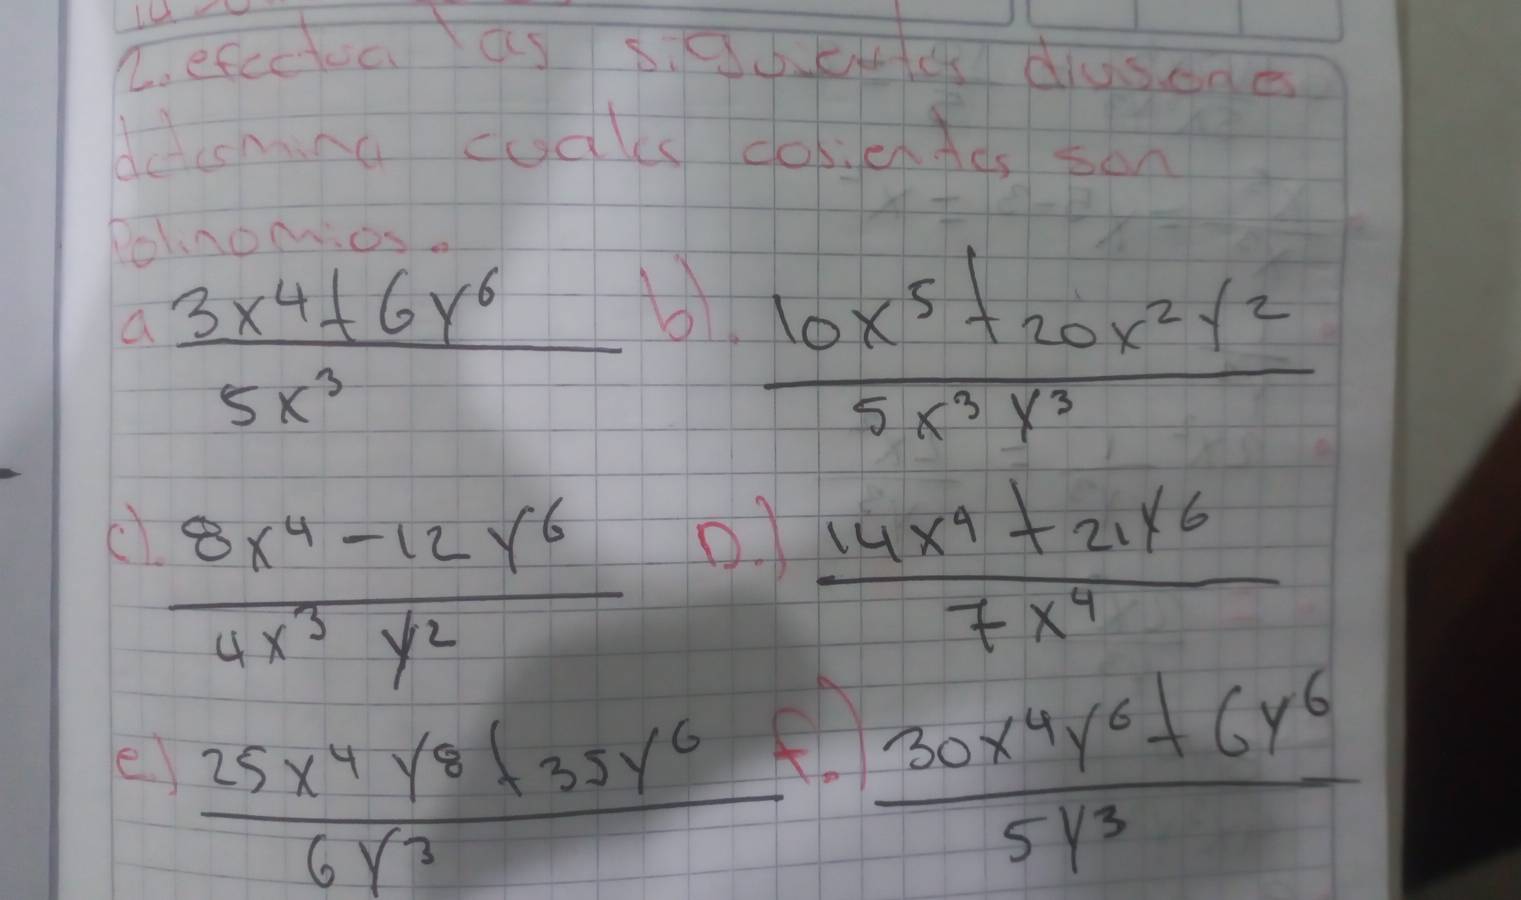 2. efectua las siguientes divisiones
determina cuales cosientes son
Polinomios.
a 3x⁴+6y⁶ / 5x³ b). 10x⁵+20x²y² / 5x³y³
c). 8x⁴-12y⁶ / 4x³y² D.) 14x⁴+21y⁶ / 7x⁴
e) 25x⁴y⁸+35y⁶ / 6y³ f.) 30x⁴y⁶+6y⁶ / 5y³